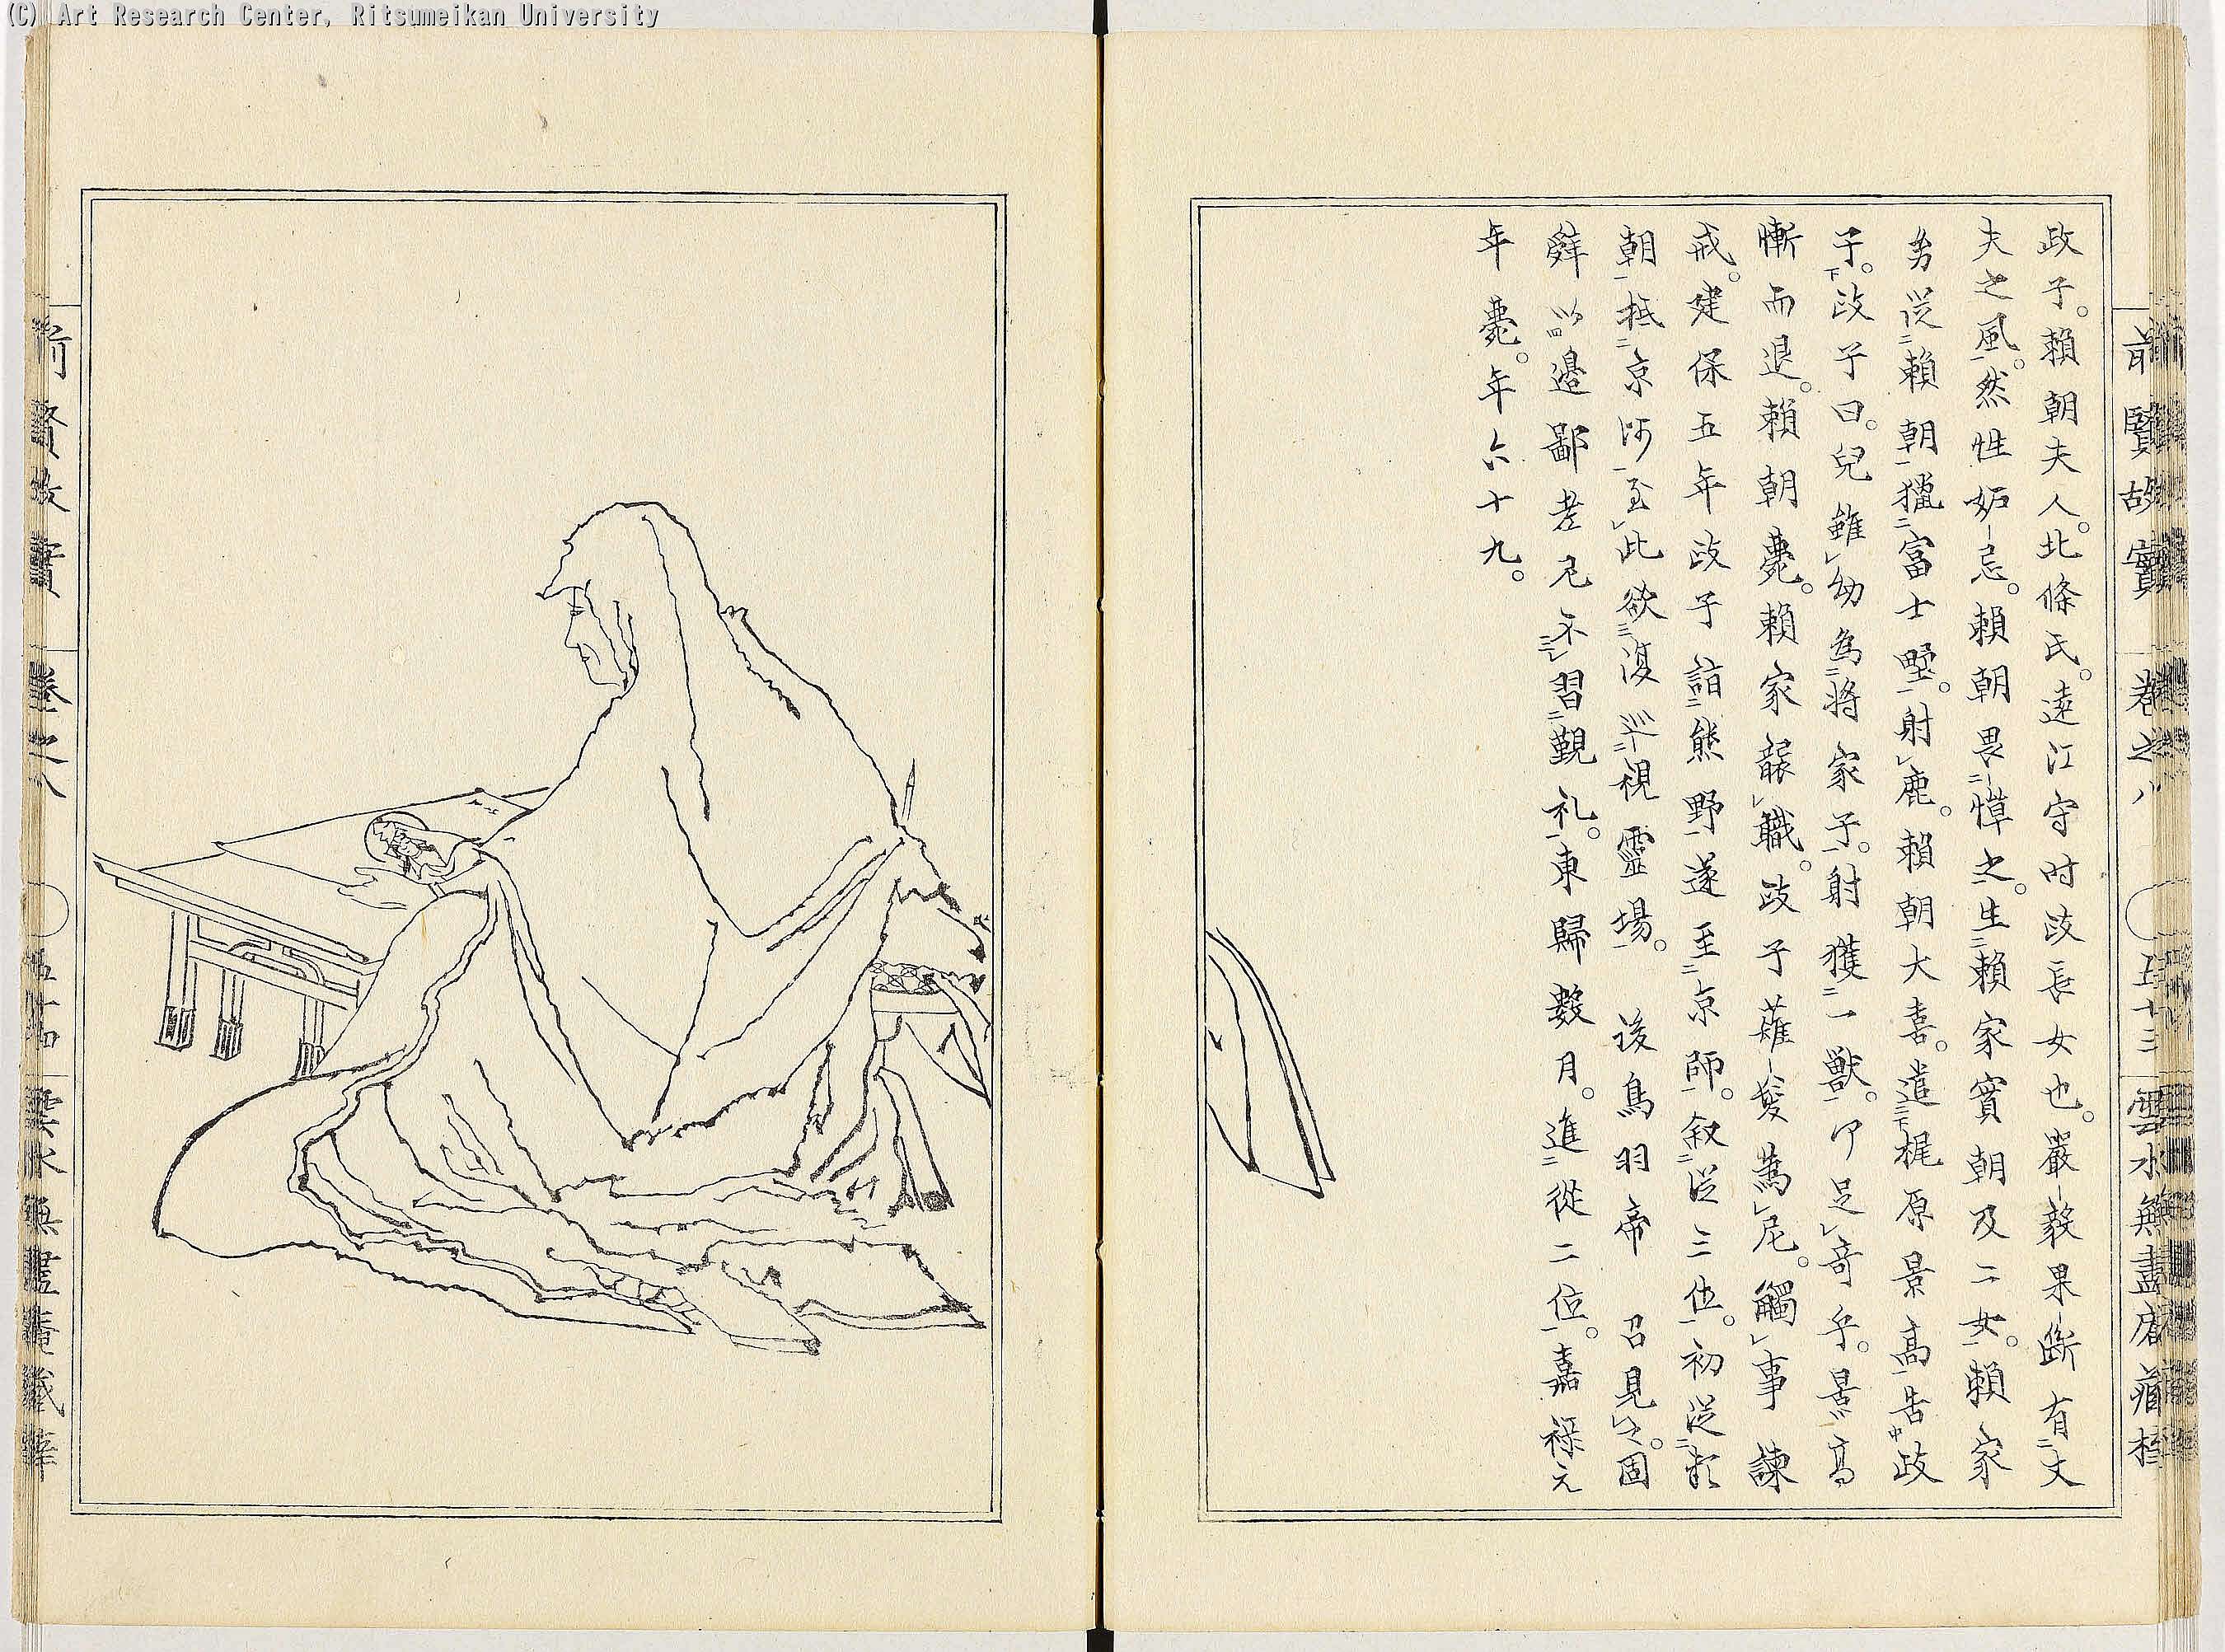 (C) Art Research Center, Ritsumeikan University
前賢故實 卷之八 五十三 雲水無盡庵藏梓
政子。賴朝夫人。北條氏。遠江守時政長女也。嚴毅果斷有丈
夫之風。然性妬忌。賴朝畏憚之。生賴家實朝及二女。賴家
男從賴朝獵富士野。射鹿。賴朝大喜。遣梶原景高告政
子。政子曰。兒雖幼為將家子。射獲一獸。何足奇乎。景高
慚而退。賴朝薨。賴家襲職。政子薙髮為尼。觸事諫
戒。建保五年政子詣熊野遂至京師。叙從三位。初從賴
朝抵京師至此欲復巡視靈場。後鳥羽帝 召見之。固
辭以邊鄙老尼不習覲礼。東歸數月。進從二位。嘉祿元
年薨。年六十九。
前賢故實 卷之八 雲水無盡庵藏梓